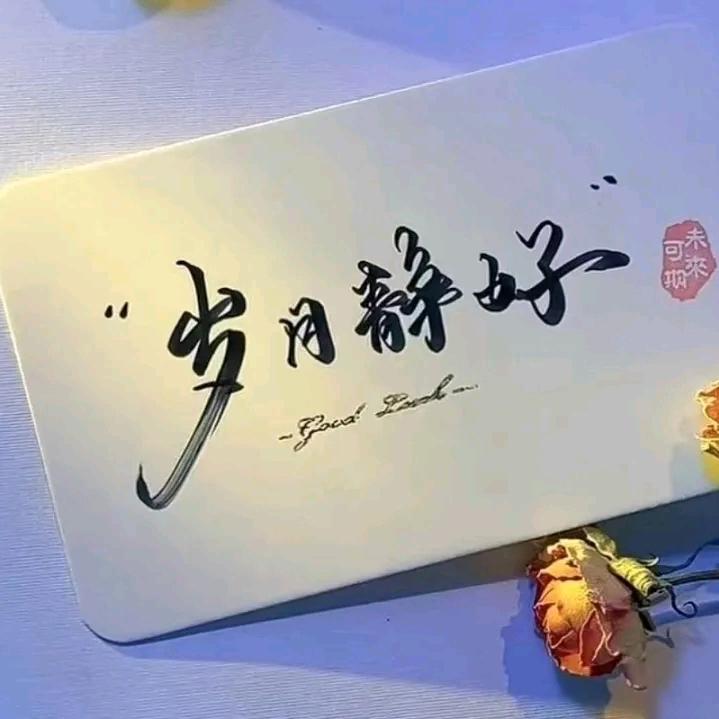 “岁月静好”
-Good Luck-
未來
可期